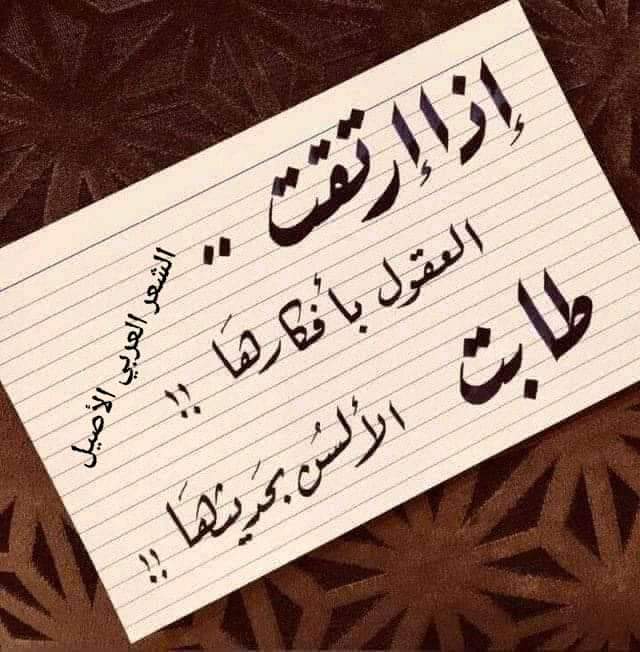 إذا إرتقت ..
العقول بأفكارهَا !!
طابت
الألسُن بحَديثهَا !!
الشعر العربي الأصيل